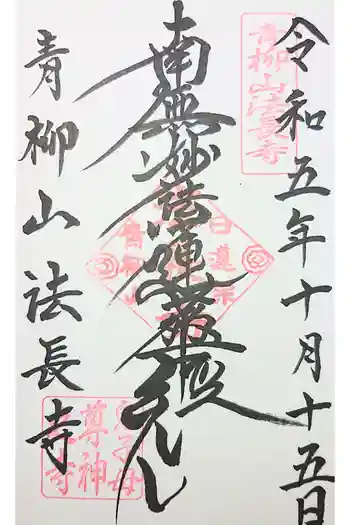 令和五年十月十五日
青柳山法長寺
南無妙法蓮華経
日蓮宗
青柳山
鬼子母
尊神
青柳山法長寺